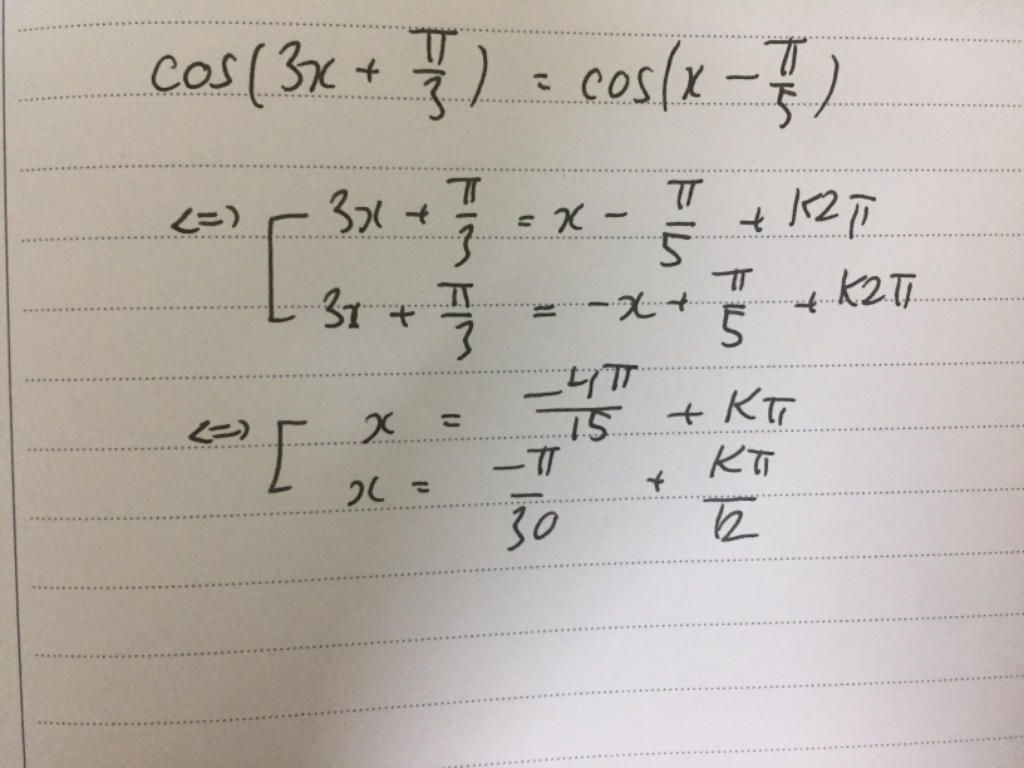 cos(3x + π/3) = cos(x - π/5)
<=> [ 3x + π/3 = x - π/5 + K2π
3x + π/3 = -x + π/5 + K2π
<=> [ x = -4π/15 + Kπ
x = -π/30 + Kπ/2